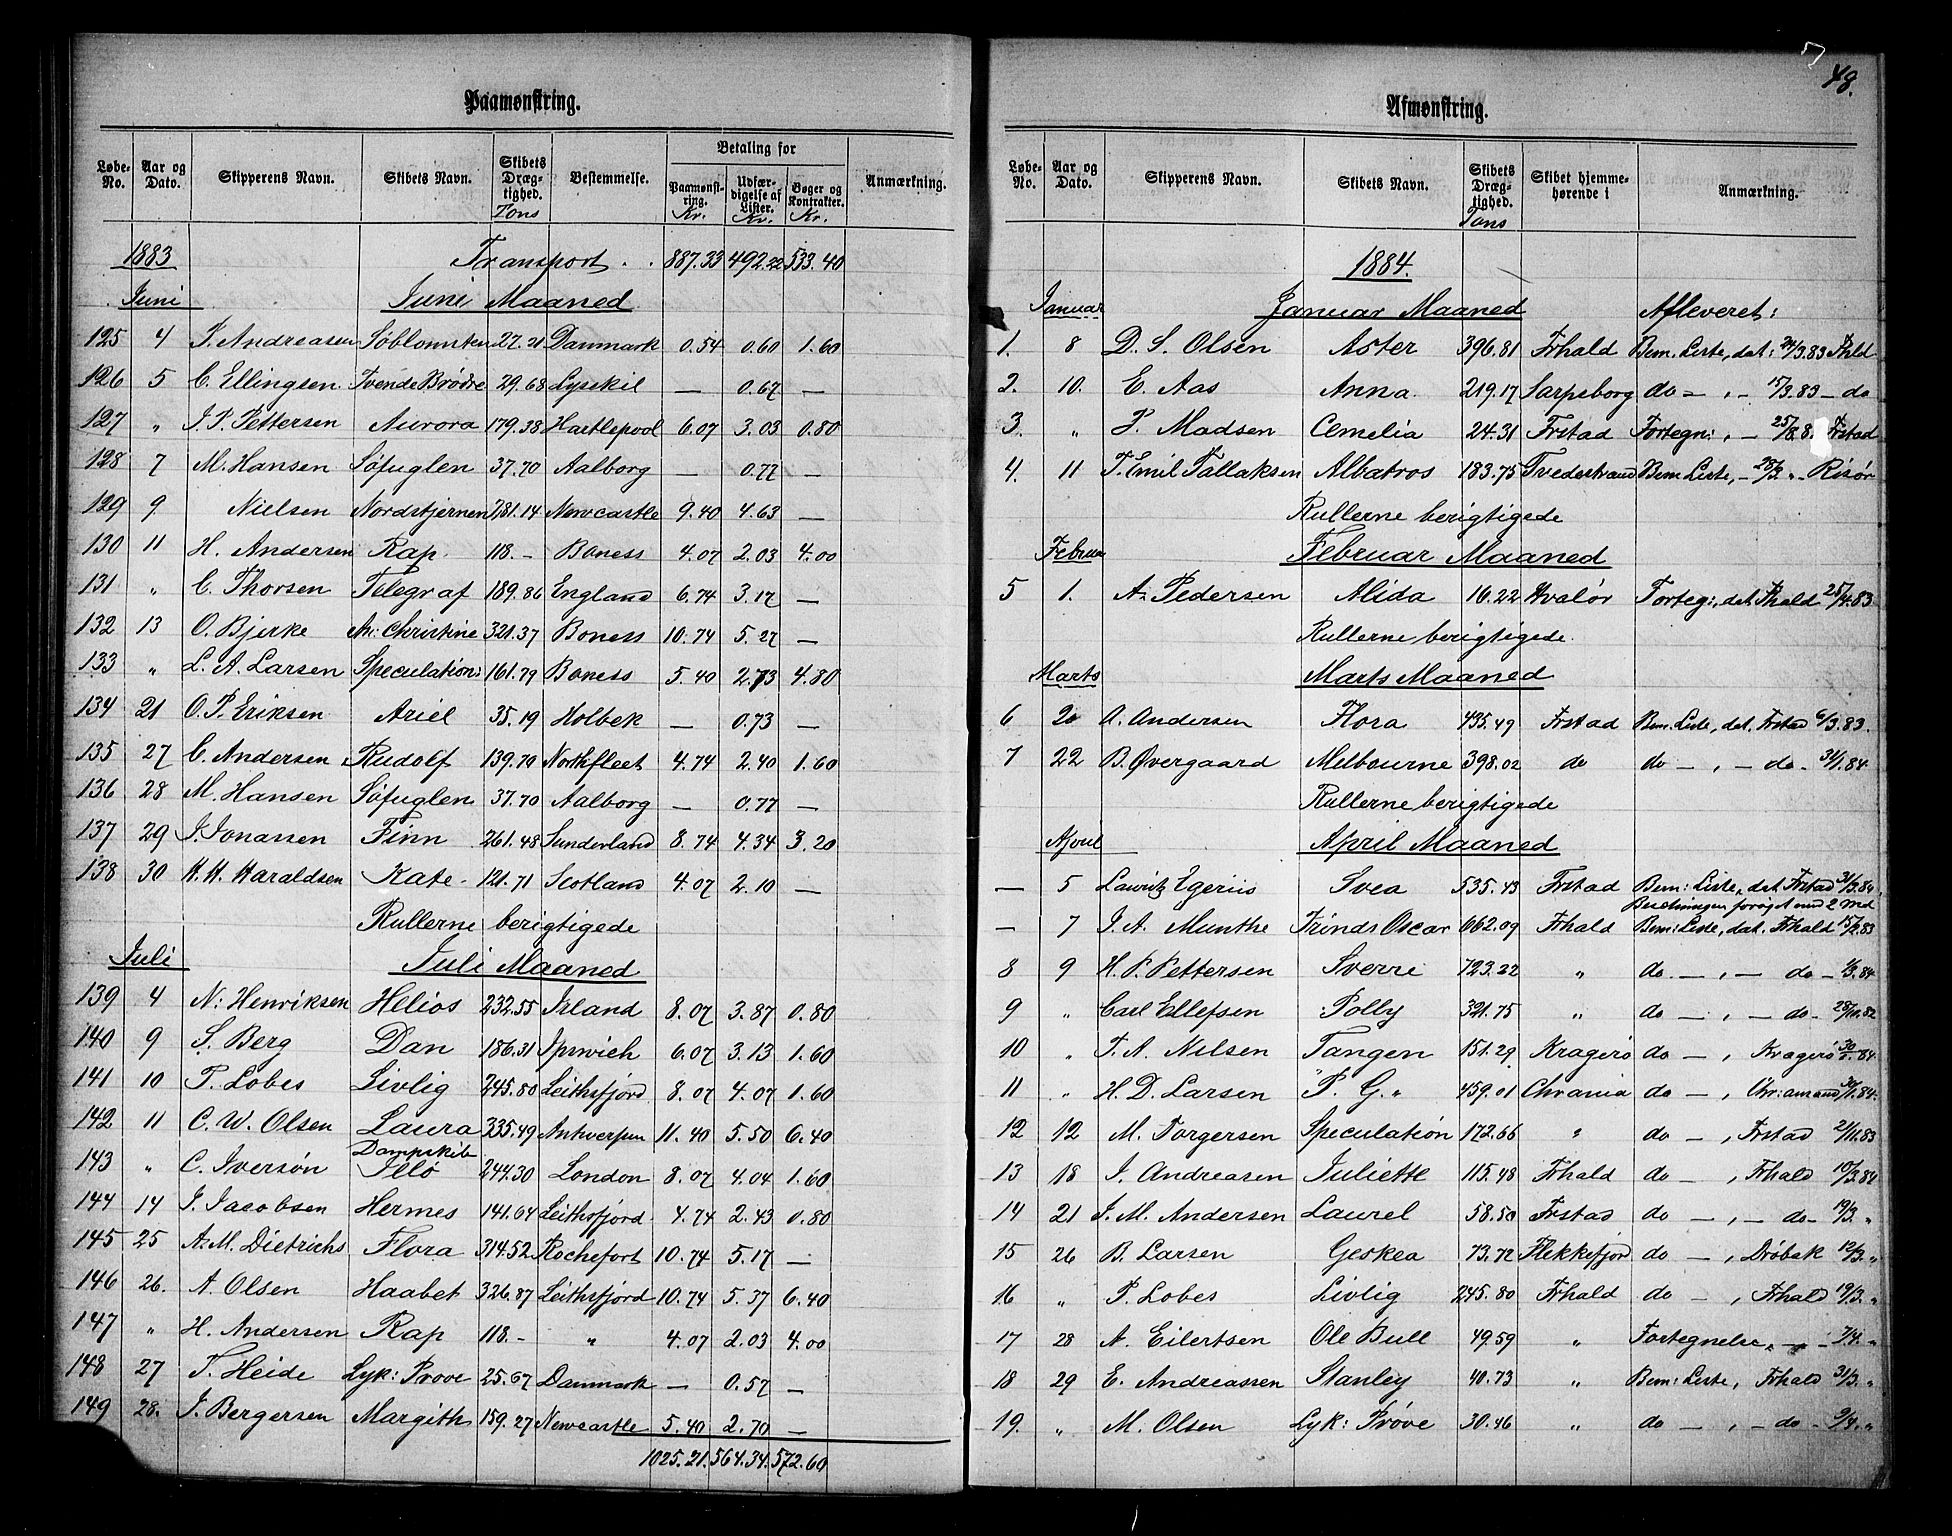 Paamønstring.
Løbe-No. Aar og Dato. Skipperens Navn. Skibets Navn. Skibets Dræg-tighed. Tons Bestemmelse. Betaling for Paamønst-ring. Kr. Udfær-digelse af Lister. Kr. Bøger og Kontrakter. Kr. Anmærkning.
1883 Transport . . 887.33 492.22 533.40
Juni Juni Maaned
125 4 J. Andreasen Søblomsten 27.21 Danmark 0.54 0.60 1.60
126 5 C. Ellingsen Tvende Brødre 29.68 Lysekil — 0.67 —
127 " J. P. Pettersen Aurora 179.38 Hartlepool 6.07 3.03 0.80
128 7 M. Hansen Søfuglen 37.70 Aalborg — 0.77 —
129 9 Nielsen Nordstjernen 281.14 Newcastle 9.40 4.63 —
130 11 H. Andersen Rap 118.- Boness 4.07 2.03 4.00
131 " C. Thorsen Telegraf 189.86 England 6.74 3.17 —
132 13 O. Bjerke An: Christine 321.37 Boness 10.74 5.27 —
133 " L. A. Larsen Speculation 161.79 Boness 5.40 2.73 4.80
134 21 O. P. Eriksen Ariel 35.19 Holbek — 0.73 —
135 27 C. Andersen Rudolf 139.70 Northfleet 4.74 2.40 1.60
136 28 M. Hansen Søfuglen 37.70 Aalborg — 0.77 —
137 29 J. Jonassen Finn 261.48 Sunderland 8.74 4.34 3.20
138 30 H. H. Haraldsen Kate 121.71 Scotland 4.07 2.10 —
Rullerne berigtigede
Juli Juli Maaned
139 4 N: Henriksen Helios 232.55 Irland 8.07 3.87 0.80
140 9 S. Berg Dan 186.31 Ipswich 6.07 3.13 1.60
141 10 P. Lobes Livlig 245.80 Leithsfjord 8.07 4.07 1.60
142 11 C. W. Olsen Laura 335.49 Antwerpen 11.40 5.50 6.40
143 " C. Iversøn Dampskib Illø 244.30 London 8.07 4.04 1.60
144 14 J. Jacobsen Hermes 141.64 Leithsfjord 4.74 2.43 0.80
145 25 A. M. Dietrichs Flora 314.52 Rochefort 10.74 5.17 —
146 26. A. Olsen Haabet 326.87 Leithsfjord 10.74 5.37 6.40
147 " H. Andersen Rap 118.- " 4.07 2.03 4.00
148 27 T. Heide Lyk: Prøve 25.67 Danmark — 0.57 —
149 28. J. Bergersen Margith 159.27 Newcastle 5.40 2.70 —
1025.21. 564.34. 572.60
48.
Afmønstring.
Løbe-No. Aar og Dato. Skipperens Navn. Skibets Navn. Skibets Dræg-tighed. Tons Skibet hjemme-hørende i Anmærkning.
1884.
Januar Januar Maaned Afleveret:
1. 8 D. S. Olsen Aster 396.81 Frhald Bem. Liste, dat: 24/3.83 Fhld
2. 10. E. Aas Anna 219.17 Sarpsborg do - , - 15/3.83 - do
3. " P. Madsen Cemelia 24.31 Frstad Fortegn: , - 25/8.8 Frstad
4. 11 T. Emil Tallaksen Albatros 183.75 Tvedestrand Bem Liste, - " - Risør
Rullerne berigtigede
Februar Februar Maaned
5 1. A. Pedersen Alida 16.22 Hvaler Forteg:, dat. Fhald 25/4.83
Rullerne berigtigede.
Marts Marts Maaned
6 20 A. Andersen Flora 435.49 Frstad Bem. Liste, dat. Frstad 6/3.83.
7 22 B. Øvergaard Melbourne 398.02 do do — , — do - 31/1.84.
Rullerne berigtigede
April April Maaned
— 5 Lauritz Egeriis Svea 535.43 Frstad Bem: Liste, dat Frstad 31/3.84
forøget med 2 Md
— 7 J. A. Munthe Prinds Oscar 662.09 Frhald Bem: Liste, dat. Frhald 15/2.83
8 9 H. P. Pettersen Sverre 723.22 " do. — , — do - .84
9 " Carl Ellefsen Polly 321.75 " do — , — do - 28/10.82
10 " T. A. Nilsen Tangen 151.29 Kragerø do — , Kragerø .84.
11 " H. D. Larsen "P. G." 459.01 Chrania do — , Chr:amand 30/1.84.
12 12 M. Torgersen Speculation 172.66 " do — , Frstad 21/11.83
13 18 J. Andreasen Juliette 115.48 Frhald do — , Frhald 10/3.84
14 21 J. M. Andersen Laurel 58.50 Frstad do — , — do - 19/3. "
15 26 B. Larsen Geskea 73.72 Flekkefjord do — , Drøbak 12/3. "
16 " P. Lobes Livlig 245.80 Frhald do — , Frhald 19/3. "
17 28 A. Eilertsen Ole Bull 49.59 " Fortegnelse, — " — 7/4. "
18 29 E. Andreassen Stanley 40.73 " Bem: Liste, Frhald 31/3. "
19. " M. Olsen Lyk: Prøve 30.46 " do — , — do - 9/4. "